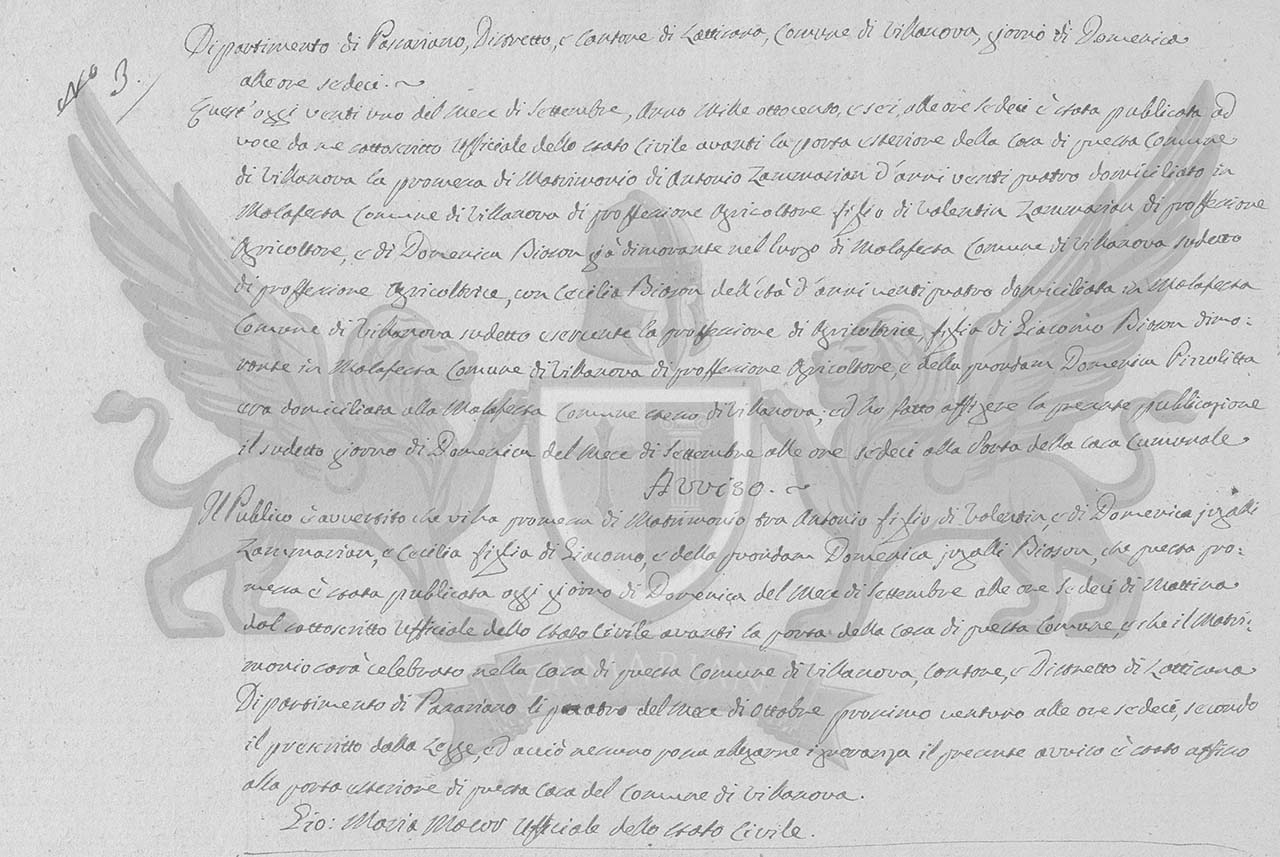 No 3.
Dipartimento di Passariano, Distretto, e Cantone di Latticana, Comune di Villanova, giorno di Domenica
alle ore sedeci. ~
Quest'oggi venti uno del Mese di Settembre, Anno Mille ottocento, e sei, alle ore sedeci è stata publicata ad
voce da me sottoscritto Ufficiale dello stato Civile avanti la porta esteriore della Casa di questa Comune
di Villanova la promessa di Matrimonio di Antonio Zammarian d'anni venti quatro domiciliato in
Malafesta Comune di Villanova di proffessione Agricoltore figlio di Valentin Zammarian di proffessione
Agricoltore, e di Domenica Bioson già dimorante nel luogo di Malafesta Comune di Villanova sudetto
di proffessione Agricoltrice, con Cecilia Bioson dell'età d'anni venti quatro domiciliata in Malafesta
Comune di Villanova sudetto esercente la proffessione di Agricoltrice, figlia di Giacomo Bioson dimo-
rante in Malafesta Comune di Villanova di proffessione Agricoltore, e della quondam Domenica Pizzolitta
era domiciliata alla Malafesta Comune stesso di Villanova; ed ho fatto affigere la presente publicazione
il sudetto giorno di Domenica del Mese di Settembre alle ore sedeci alla Porta della Casa Comunale
Avviso. ~
Il Publico è avvertito che vi ha promessa di Matrimonio tra Antonio figlio di Valentin, e di Domenica jugalli
Zammarian, e Cecilia figlia di Giacomo, e della quondam Domenica jugalli Bioson, che questa pro-
messa è stata publicata oggi giorno di Domenica del Mese di Settembre alle ore sedeci di Mattina
dal sottoscritto Ufficiale dello stato Civile avanti la porta della Casa di questa Comune, e che il Matri-
monio sarà celebrato nella Casa di questa Comune di Villanova, Cantone, e Distretto di Latticana
Dipartimento di Passariano li quatro del Mese di Ottobre prossimo venturo alle ore sedeci, secondo
il prescritto dalla Legge, ed acciò nessuno possa allegarne ignoranza il presente avviso è stato affisso
alla porta esteriore di questa Casa del Comune di Villanova.
Gio: Maria Ufficiale dello stato Civile.
ZAMARIAN